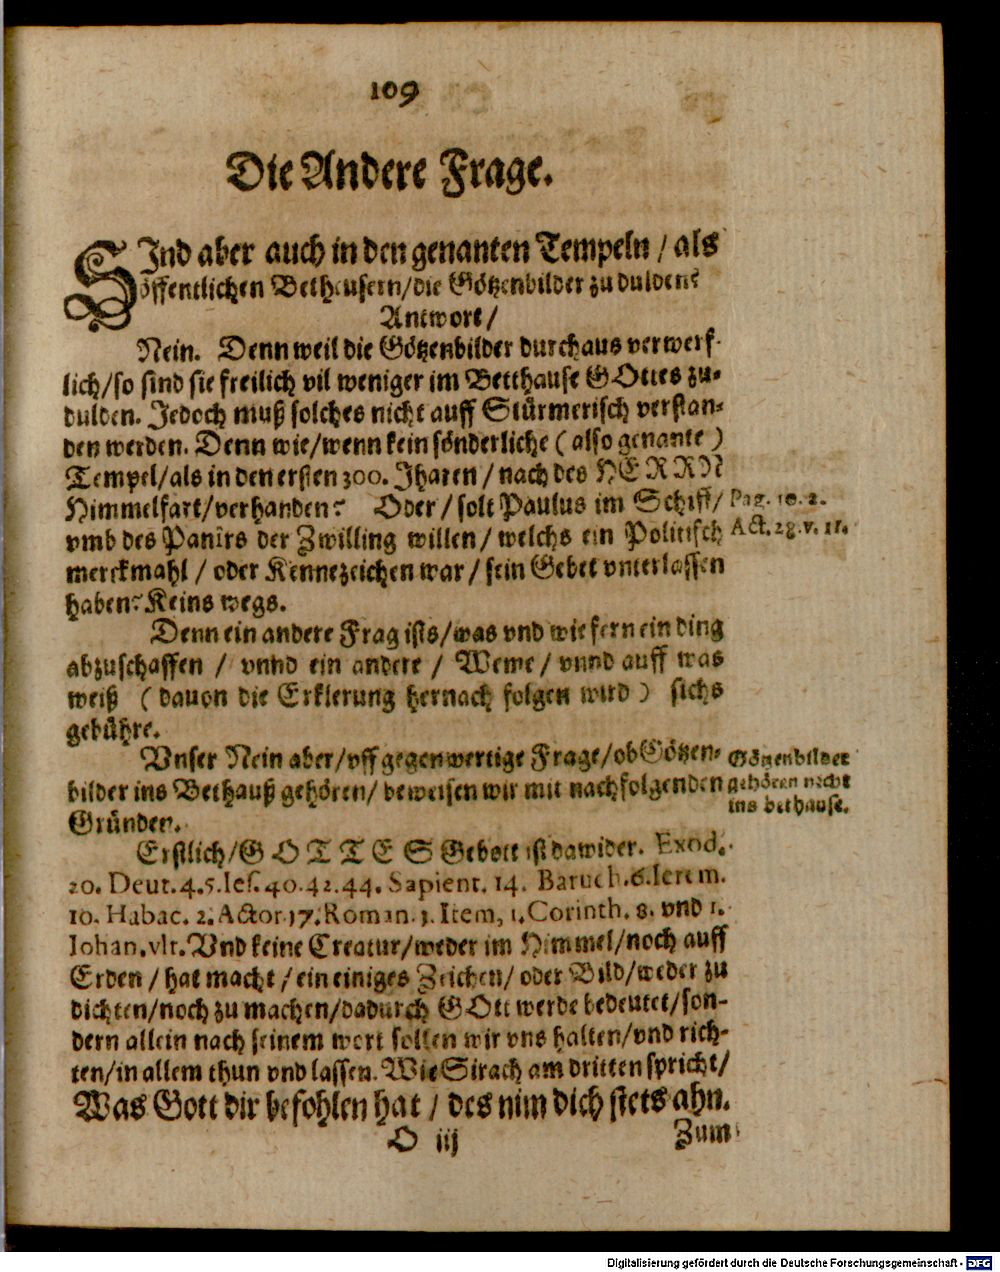 109
Die Andere Frage.
SInd aber auch in den genanten Tempeln / als
öffentlichen Betheusern/die Götzenbilder zu dulden?
Antwort/
Nein. Denn weil die Götzenbilder durchaus verwerf-
lich/so sind sie freilich vil weniger im Betthause GOttes zu-
dulden. Jedoch muß solches nicht auff Stürmerisch verstan-
den werden. Denn wie/wenn kein sönderliche (also genante)
Tempel/als in den ersten 300. Jharen / nach des HERRN
Himmelfart/verhanden? Oder / solt Paulus im Schiff/
Pag. 10. 2.
vmb des Panirs der Zwilling willen / welchs ein Politisch
Act. 28. v. 11.
merckmahl / oder Kennezeichen war / sein Gebet vnterlassen
haben? Keins wegs.
Denn ein andere Frag ists/was vnd wie fern ein ding
abzuschaffen / vnnd ein andere / Weme / vnnd auff was
weiß (dauon die Erklerung hernach folgen wird) sichs
gebühre.
Vnser Nein aber/vff gegenwertige Frage/ob Götzen-
bilder ins Bethauß gehören/ beweisen wir mit nachfolgenden
Gründen.
Götzenbilder
gehören nicht
ins bethause.
Erstlich/GOTTES Gebott ist dawider. Exod.
20. Deut. 4. 5. Ies. 40. 42. 44. Sapient. 14. Baruch. 6. Ierem.
10. Habac. 2. Actor. 17. Roman. 1. Item, 1. Corinth. 8. vnd 1.
Iohan. vlt. Vnd keine Creatur/weder im Himmel/noch auff
Erden / hat macht / ein einiges Zeichen/ oder Bild/weder zu
dichten/noch zu machen/dadurch GOtt werde bedeutet/son-
dern allein nach seinem wort sollen wir vns halten/vnd rich-
ten/in allem thun vnd lassen. Wie Sirach am dritten spricht/
Was Gott dir befohlen hat / des nim dich stets ahn.
O iij
Zum
Digitalisierung gefördert durch die Deutsche Forschungsgemeinschaft - DFG